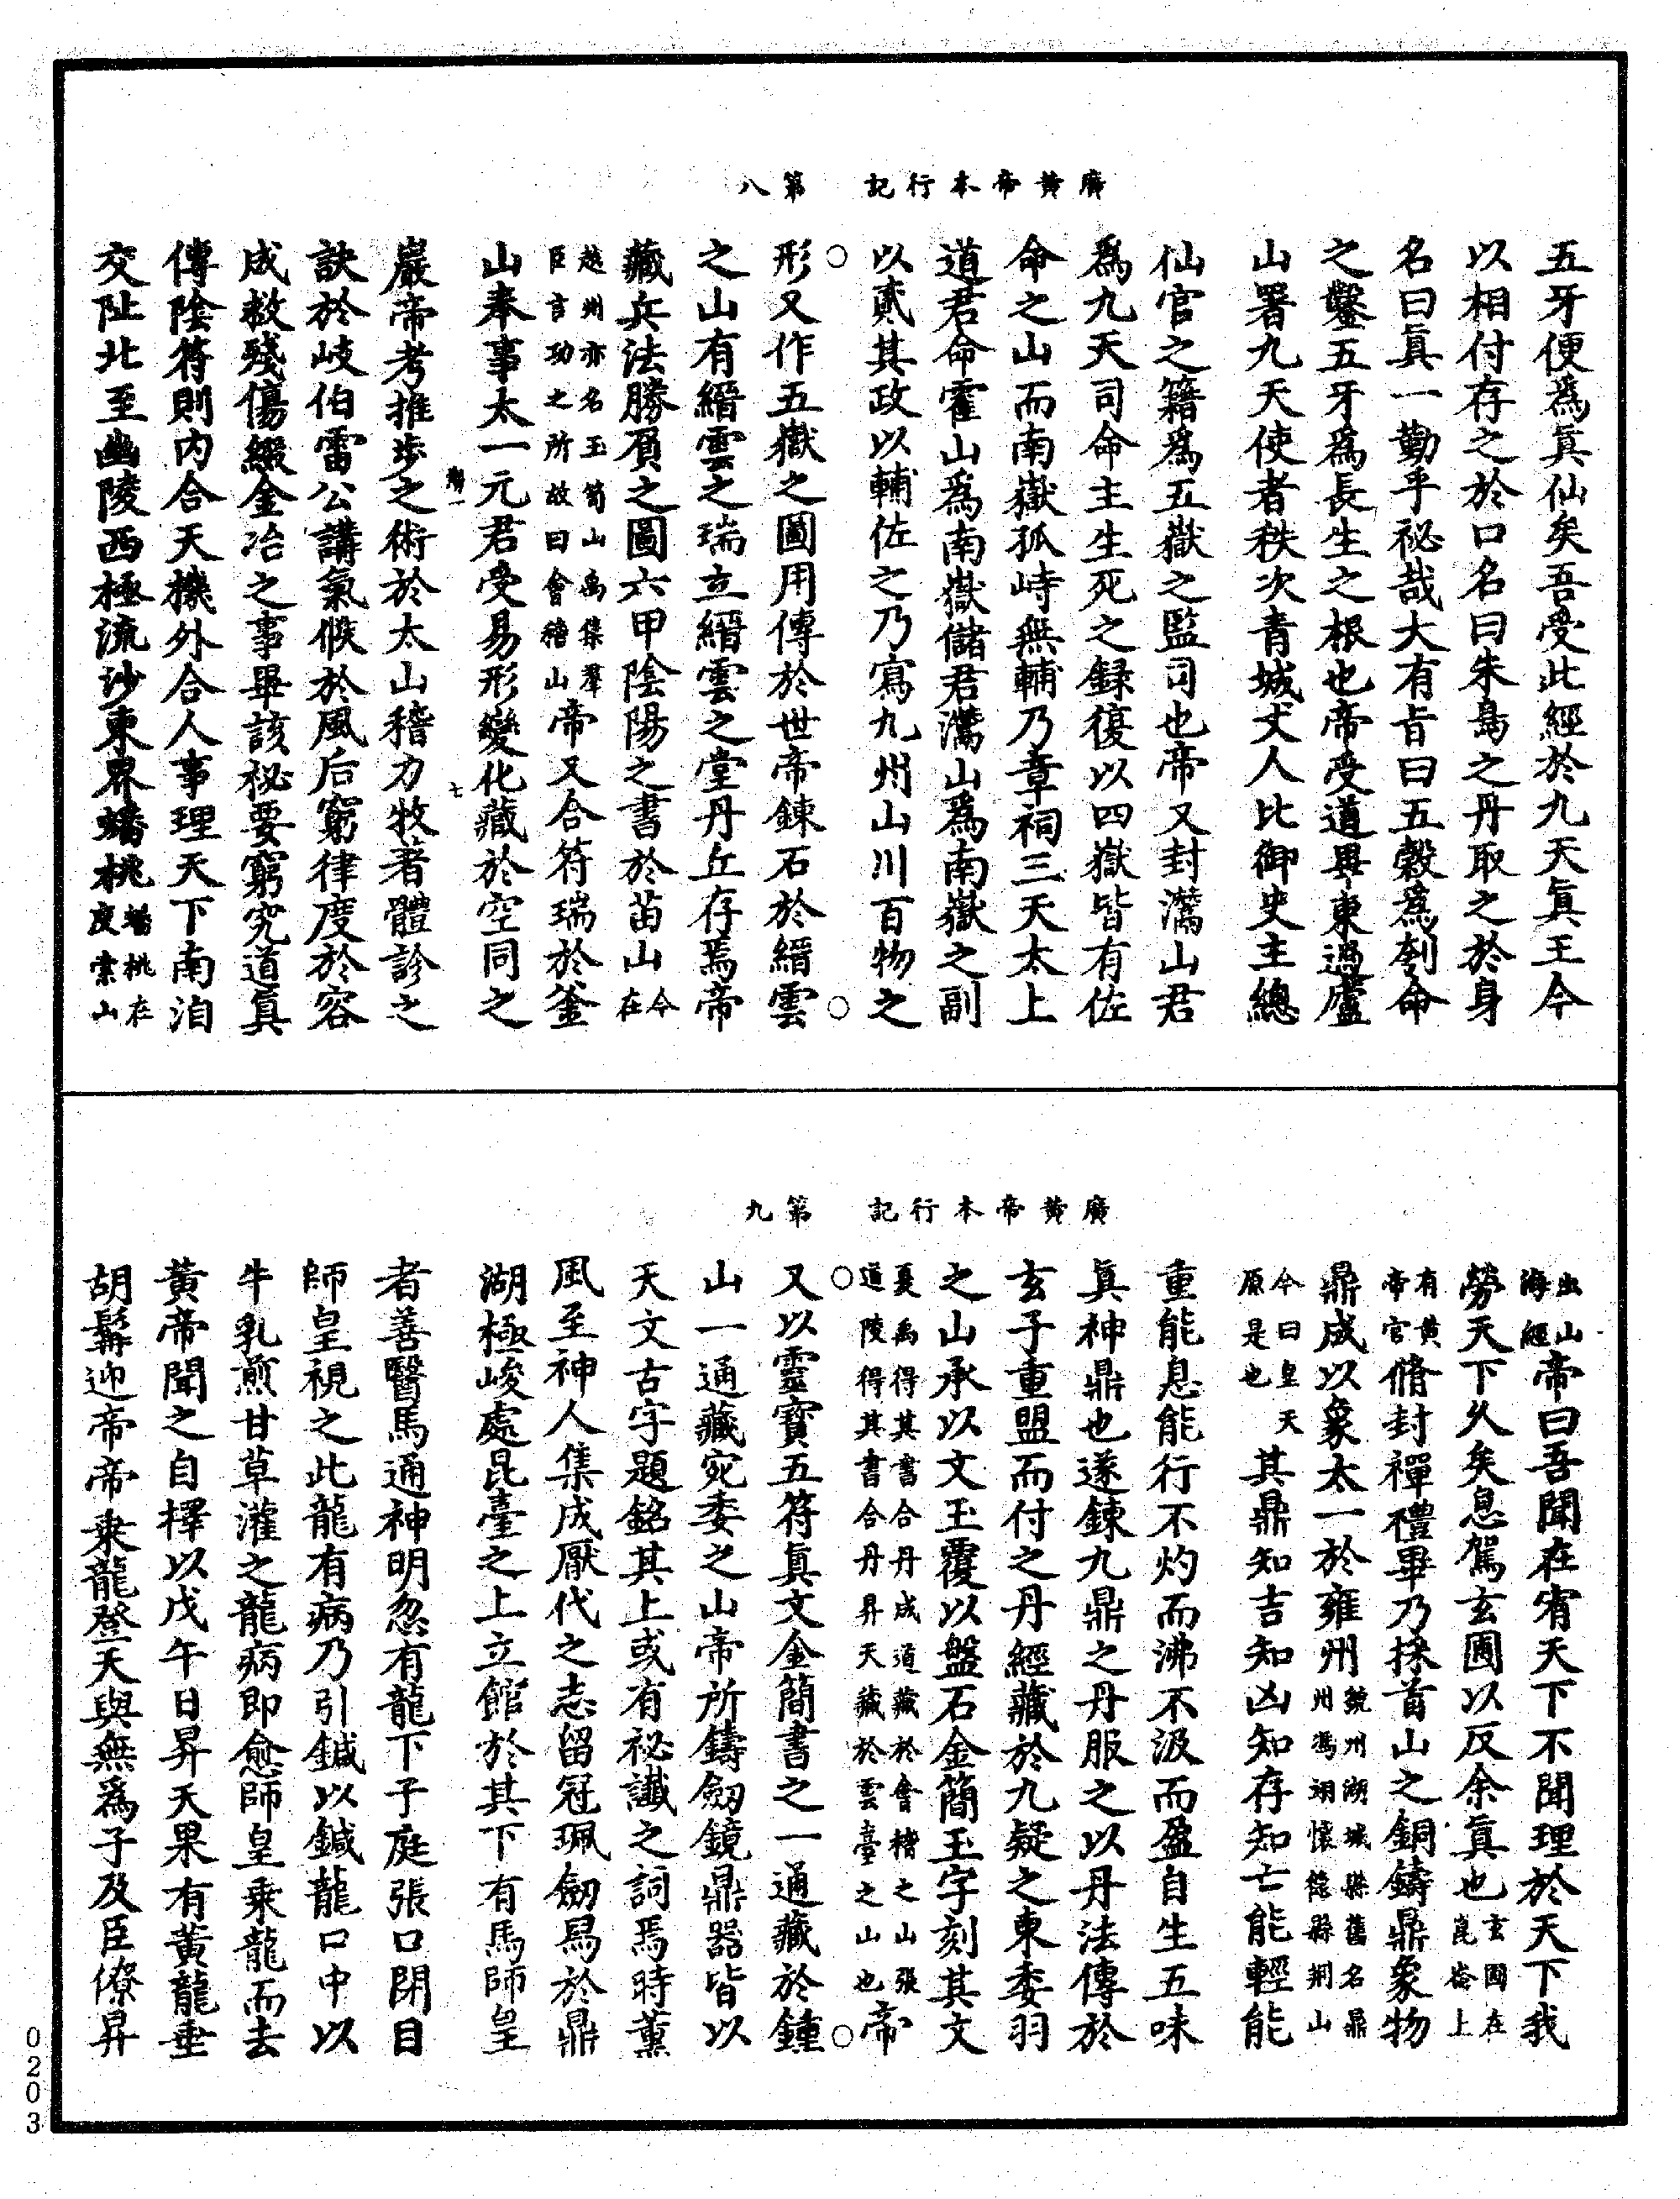 廣黃帝本行記　第八
五牙便爲眞仙矣吾受此經於九天眞王今
以相付存之於口名曰朱鳥之丹取之於身
名曰眞一勤乎祕哉大有旨曰五穀爲刳命
之鑿五牙爲長生之根也帝受道畢東過廬
山署九天使者秩次青城丈人比御史主總
仙官之籍爲五嶽之監司也帝又封灊山君
爲九天司命主生死之録復以四嶽皆有佐
命之山而南嶽孤峙無輔乃章祠三天太上
道君命霍山爲南嶽儲君灊山爲南嶽之副
以貳其政以輔佐之乃寫九州山川百物之
形又作五嶽之圖用傳於世帝鍊石於縉雲
之山有縉雲之瑞立縉雲之堂丹丘存焉帝
藏兵法勝負之圖六甲陰陽之書於苗山今在
越州亦名玉笥山禹集羣臣言功之所故曰會稽山帝又合符瑞於釜
山奉事太一元君受易形變化藏於空同之
巖帝考推步之術於太山稽力牧著體診之
訣於岐伯雷公講氣候於風后窮律度於容
成救殘傷綴金冶之事畢該秘要窮究道眞
傳陰符則内合天機外合人事理天下南洎
交阯北至幽陵西極流沙東界蟠桃蟠桃在度索山
廣黃帝本行記　第九
出山海經帝曰吾聞在宥天下不聞理於天下我
勞天下久矣息駕玄圃以反余眞也玄圃在崑崙上
有黃帝官脩封禪禮畢乃採首山之銅鑄鼎象物
鼎成以象太一於雍州虢州湖城縣舊名鼎州馮翊懷德縣荆山
今曰皇天原是也其鼎知吉知凶知存知亡能輕能
重能息能行不灼而沸不汲而盈自生五味
眞神鼎也遂鍊九鼎之丹服之以丹法傳於
玄子重盟而付之丹經藏於九疑之東委羽
之山承以文玉覆以盤石金簡玉字刻其文
夏禹得其書合丹成道藏於會稽之山張道陵得其書合丹昇天藏於雲臺之山也帝
又以靈寳五符眞文金簡書之一通藏於鍾
山一通藏宛委之山帝所鑄劒鏡鼎器皆以
天文古字題銘其上或有祕讖之詞焉時薰
風至神人集成厭代之志留冠珮劒舄於鼎
湖極峻處昆臺之上立館於其下有馬師皇
者善醫馬通神明忽有龍下子庭張口閉目
師皇視之此龍有病乃引鍼以鍼龍口中以
牛乳煎甘草灌之龍病即愈師皇乘龍而去
黃帝聞之自擇以戊午日昇天果有黃龍垂
胡髯迎帝帝乗龍登天與無爲子及臣僚昇
0203